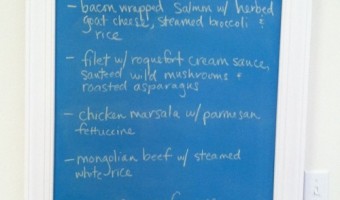 - bacon wrapped salmon w/ herbed
goat cheese, steamed broccoli &
rice
- filet w/ roquefort cream sauce,
sauteed wild mushrooms &
roasted asparagus
- chicken marsala w/ parmesan
fettuccine
- mongolian beef w/ steamed
white rice